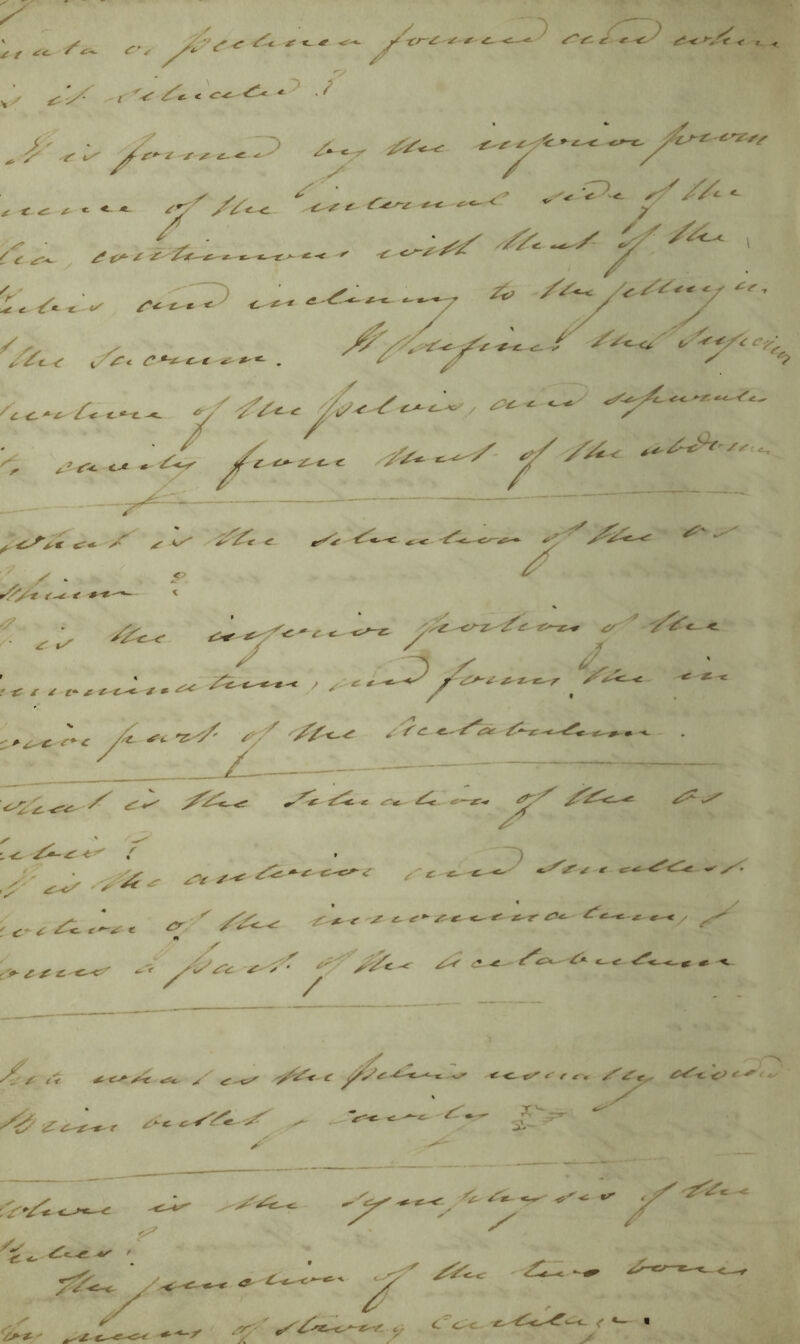 formed and where
it situated?
It is formed by the inferior prom
of the internal side of the
continuous with that of the
and inclining to the
the Sacrum. It defines the Superior
of the pelvis, and separates
cavity from that of the abdomen
What is the situation of the os
is the inferior portion of the
innominatum, and forms the in
part of the Acetabulum.
What is the Situation of the Os
is the anterior and smallest
portion of the innominatum,
a part of the Acetabulum
what is the pelvis usually divided
outlet, cavity
Where is the Symphysis of the
Pubes?
The junction of the two bones
by means of strong Cartilage.